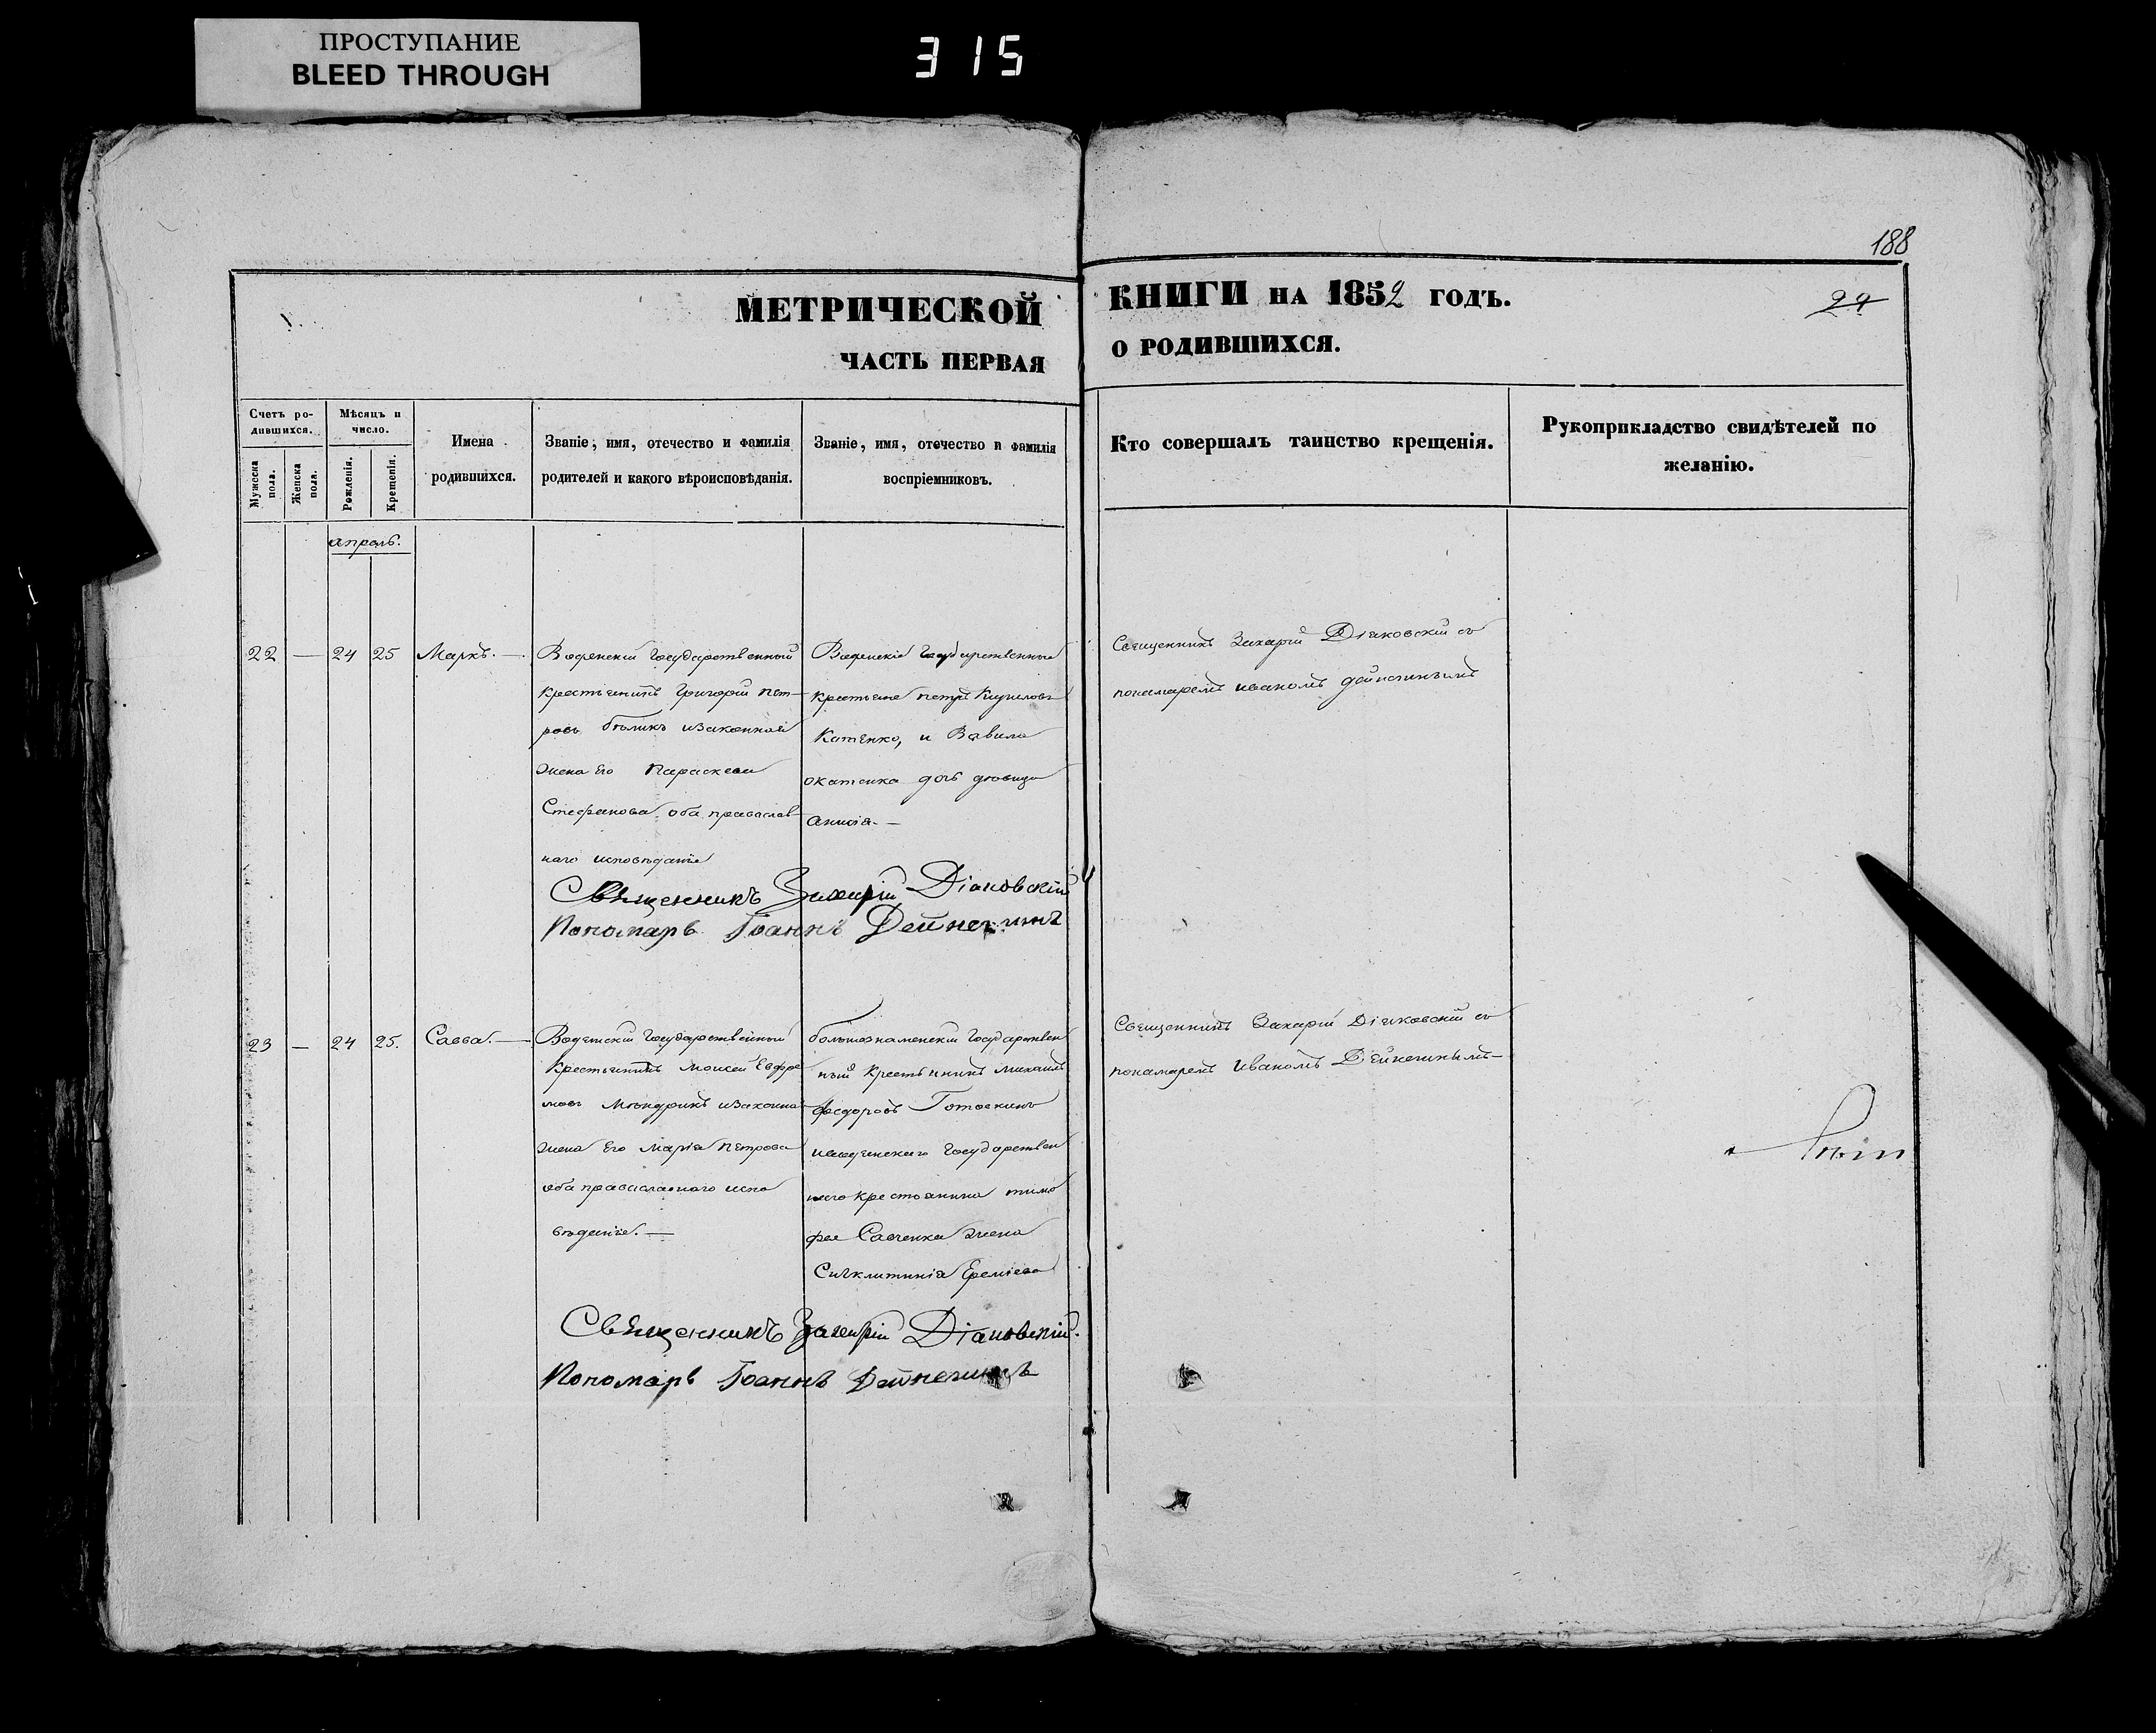 ПРОСТУПАНИЕ
BLEED THROUGH
315
188
МЕТРИЧЕСКОЙ КНИГИ НА 1852 ГОДЪ.
24
ЧАСТЬ ПЕРВАЯ О РОДИВШИХСЯ.
Счетъ ро-
дившихся.
Мужеска
пола.
Женска
пола.
Мѣсяцъ и
число.
Рожденія.
Крещенія.
Имена
родившихся.
Званіе, имя, отечество и фамилія
родителей и какого вѣроисповѣданія.
Званіе, имя, отечество и фамилія
воспріемниковъ.
Кто совершалъ таинство крещенія.
Рукоприкладство свидѣтелей по
желанію.
22 — 24 25 Маркъ. —
Государственный
крестьянинъ Григорій Пет-
ровъ изаконная
жена Его Параскева
Стефанова оба православ-
наго исповѣданіе
Государственные
крестьяне петръ
Катенко, и Вавила
окатенка дочь девица
анисія. —
Священникъ Захарій Діаковскій съ
понамаремъ иваномъ
Священникъ Захарій Діаковскій
Пономарь Іоаннъ Дейнечинъ
23 — 24 25. Савва. —
Государственный
Крестьянинъ Моисей Евфре
мовъ изаконна
жена Его Марія Петрова
оба православнаго испо
вѣданіе. —
большознаменскій Государствен
ный Крестьянинъ Михаилъ
федоровъ
Государствен
наго крестьянина тимо
фея Савченка жена
Еремѣева
Священникъ Захарій Діаковскій съ
понамаремъ Иваномъ Дейнечинымъ —
Священникъ Захарій Діаковскій.
Пономарь Іоаннъ Дейнечинъ